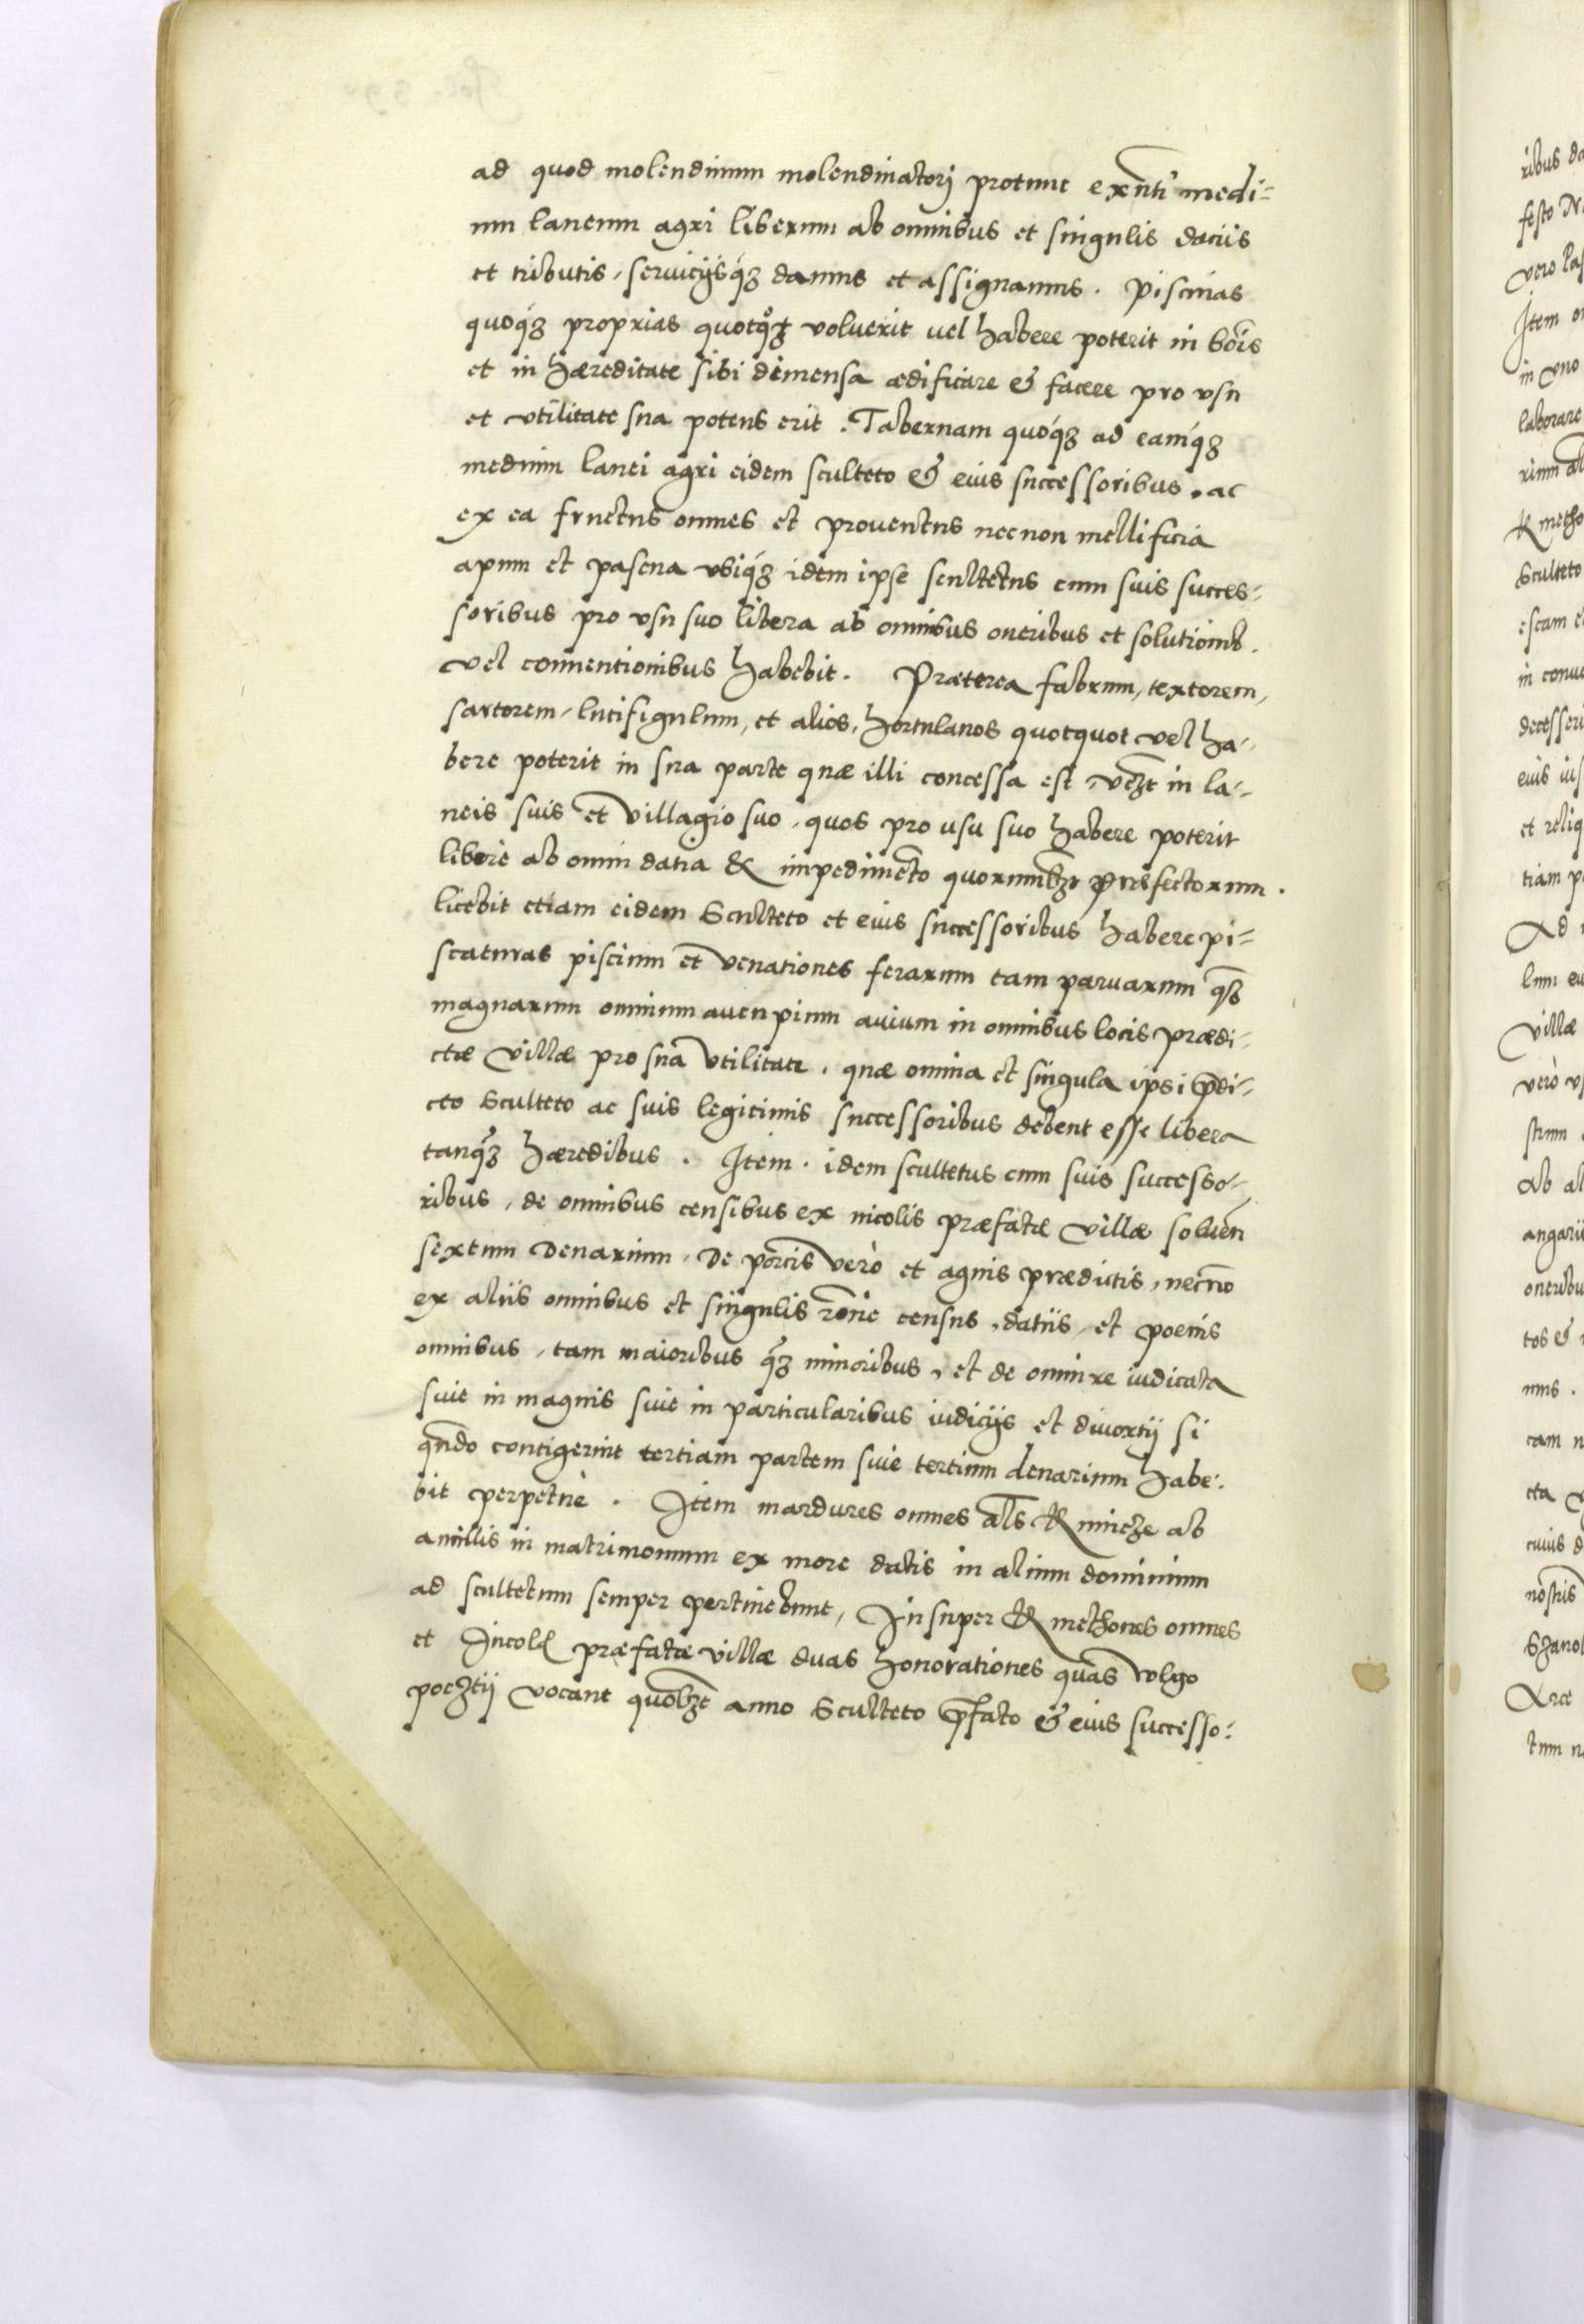 ad quod molendinum molendinatori protunc exñti medi=
um laneum agri liberum ab omnibus et singulis daciis
et tributis, seruicijsq́ꝫ damus et assignamus. Piscinas
quoq́ꝫ proprias quotqͦt voluerit uel habere poterit in bōis
et in hæreditate sibi dimensa ædificare & facere pro vsu
et vtilitate sua potens erit. Tabernam quoq́ꝫ ad eamq́ꝫ
medium lanei agri eidem sculteto & eius successoribus. ac
ex ea fructus omnes et prouentus necnon mellificia
apum et pascua vbiq́ꝫ idem ipse scultetus cum suis succes=
soribus pro vsu suo libera ab omnibus oneribus et solutionib.
vel conuentionibus habebit. Præterea fabrum, textorem,
sartorem, lutifigulum, et alios, hortulanos quotquot vel ha=
bere poterit in sua parte quæ illi concessa est, vꝫt in la=
neis suis et villagio suo, quos pro usu suo habere poterit
liberè ab omni datia & impedimēto quorumlibꝫt præfectorum.
licebit etiam eidem Sculteto et eius successoribus habere pi=
scaturas piscium et venationes ferarum tam paruarum qꝫ̄
magnarum omnium aucupium auium in omnibus locis prædi=
ctæ villæ pro sua vtilitate, quæ omnia et singula ipsi p̄di=
cto Sculteto ac suis legitimis successoribus debent esse libera
tanqꝫ̄ hæredibus. Item. idem scultetus cum suis successo=
ribus, de omnibus censibus ex incolis præfatæ villæ soluen̄
sextum denarium. De porcis verò et agnis prædictis, necnō
ex aliis omnibus et singulis rōne census, datiis, et poenis
omnibus, tam maioribus qꝫ̄ minoribus, et de omni re iudicata
siue in magnis siue in particularibus iudicijs et diuortij si
qn̄do contigerint tertiam partem siue tertium denarium habe=
bit perpetuè. Item mardures omnes al̄s & mincze ab
ancillis in matrimonium ex more datis in alium dominium
ad scultetum semper pertinebunt, Insuper & methones omnes
et Incolę præfatæ villæ duas honorationes quas volgo
pocztij vocant quolibꝫt anno Sculteto p̄fato & eius successo=